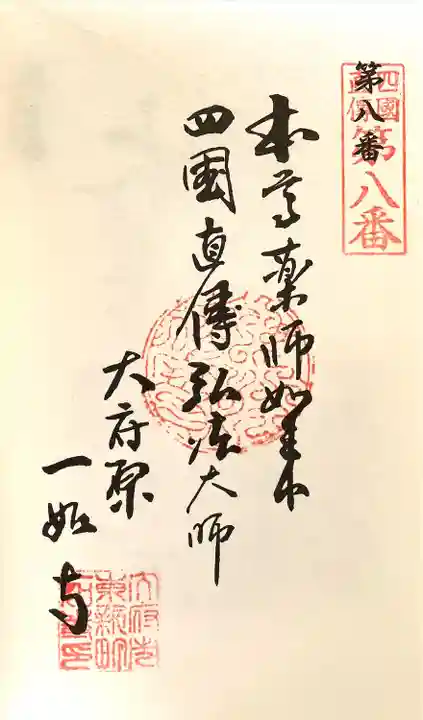 四國
直傳
第八番
第八番
本尊薬師如来
四國直傳弘法大師
大府原
一畑寺